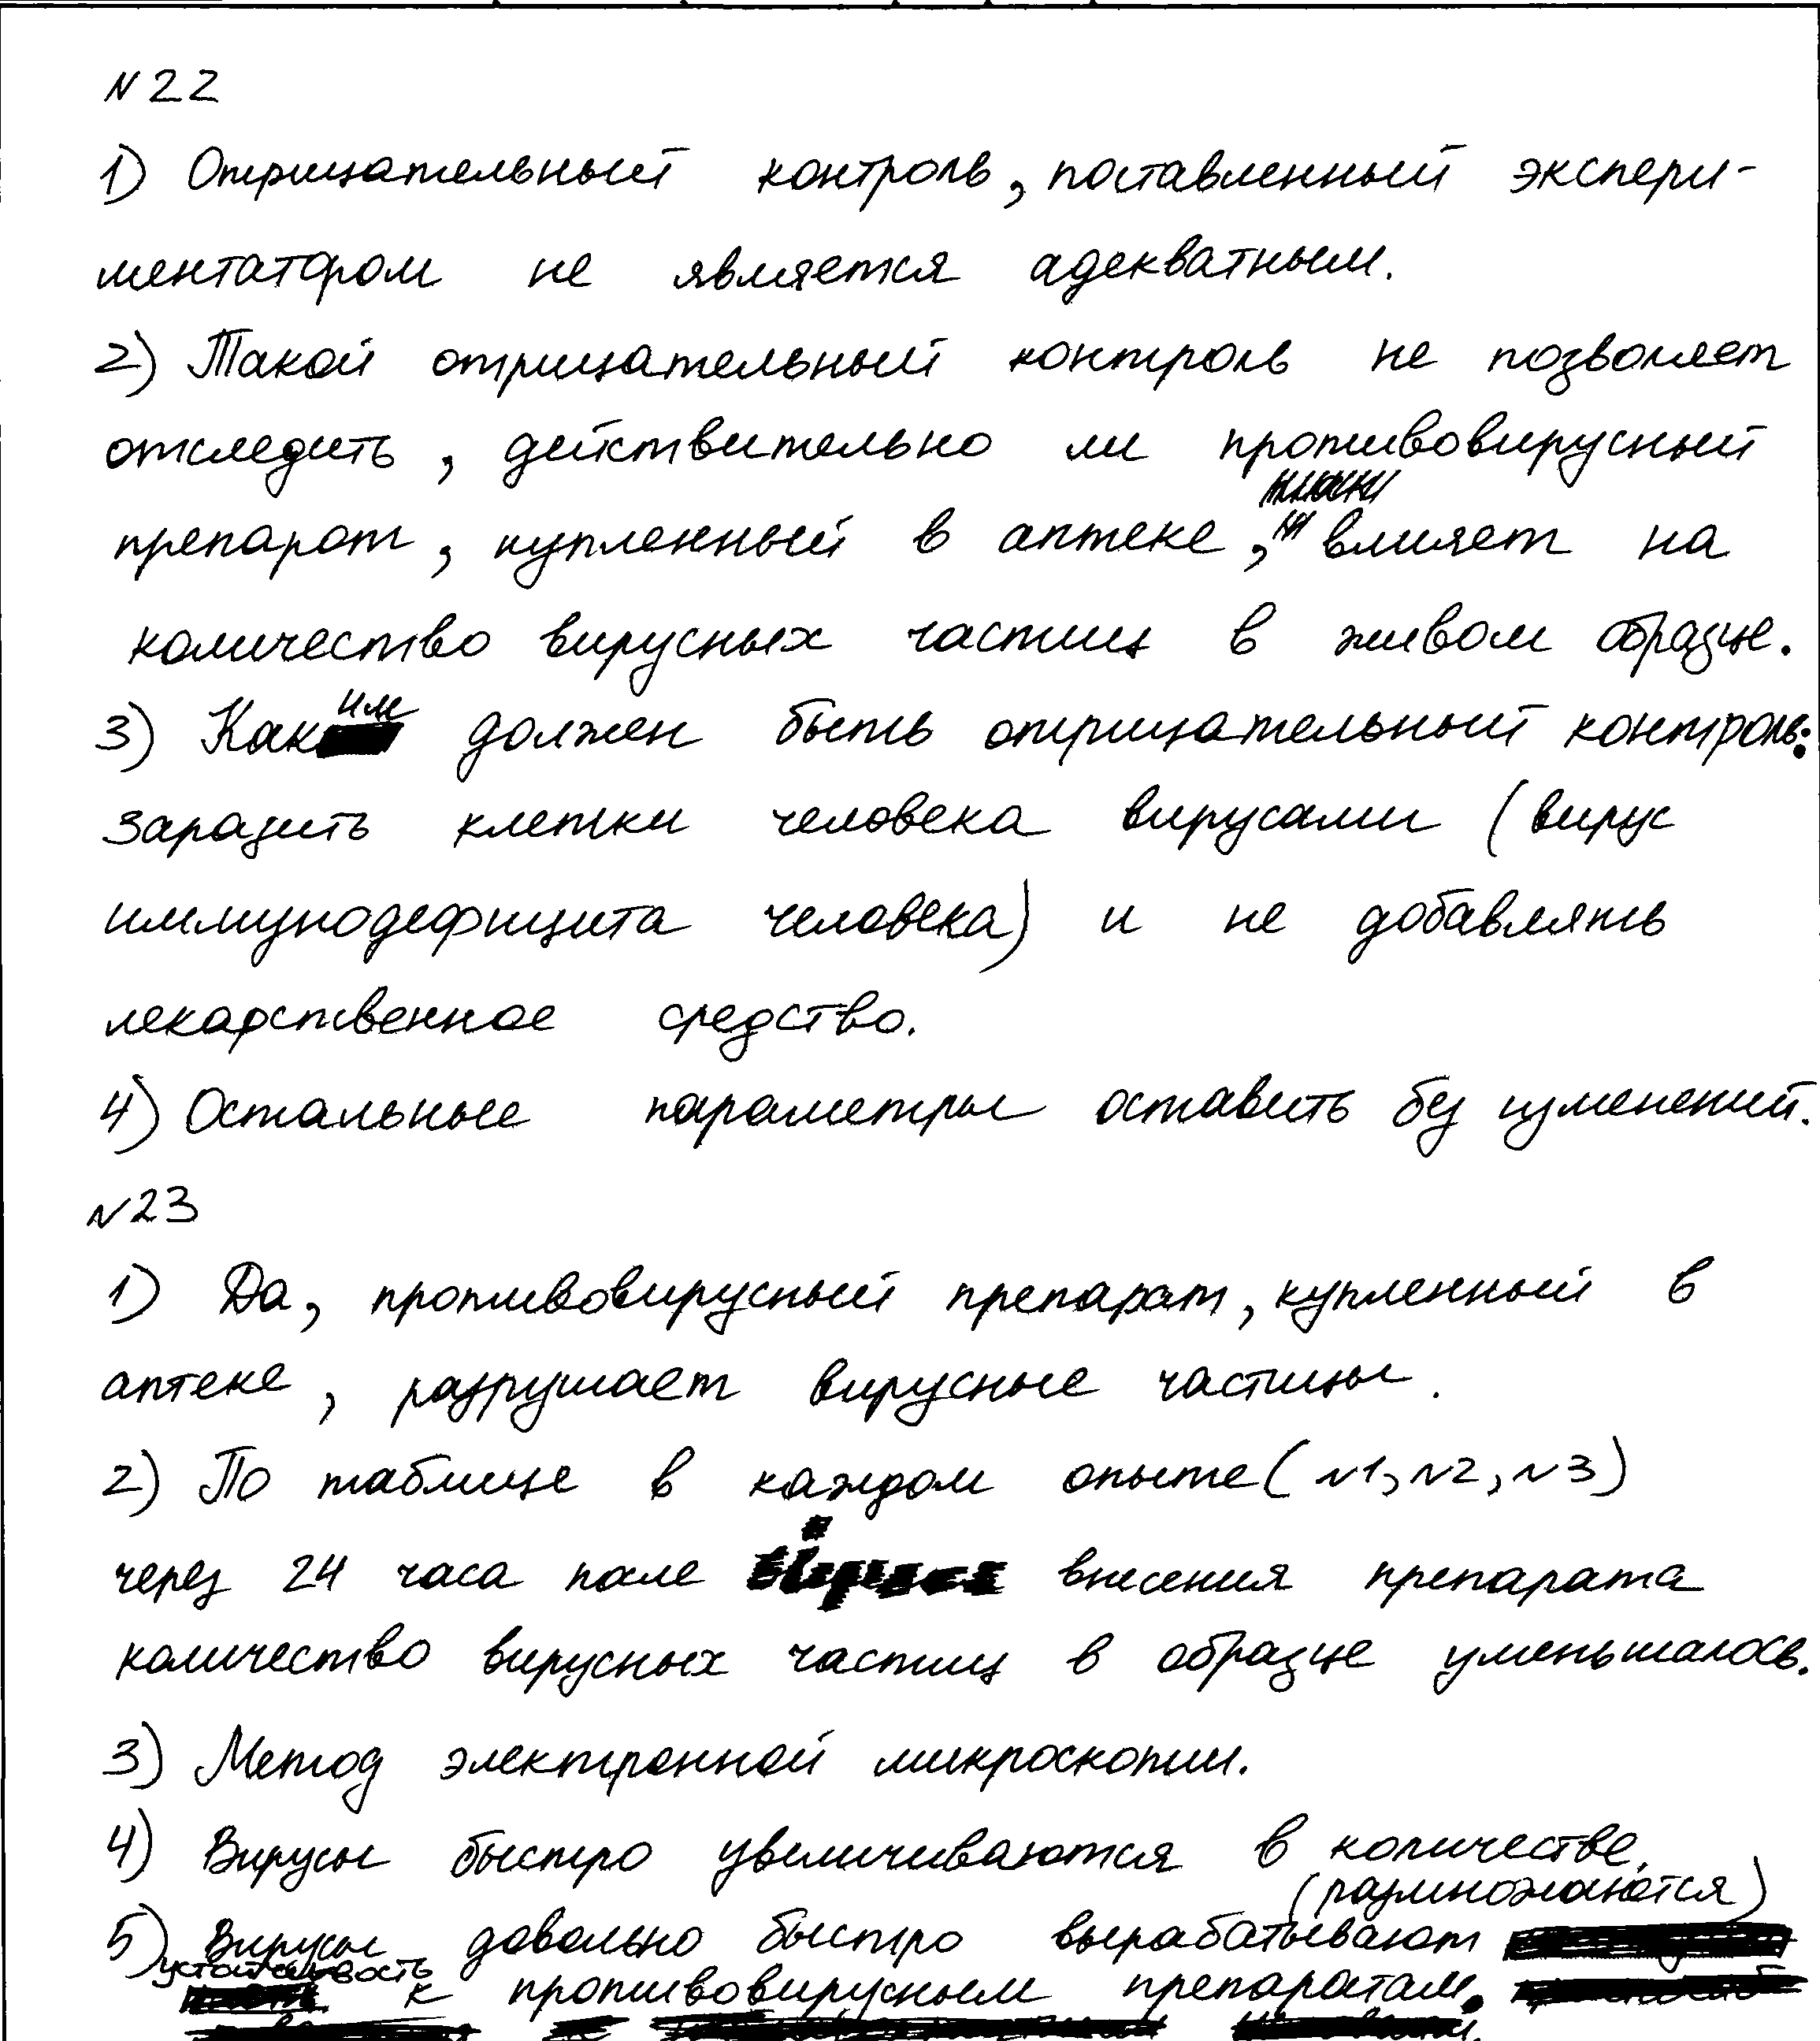 N 22
1) Отрицательный контроль, поставленный экспери-
ментатором не является адекватным.
2) Такой отрицательный контроль не позволяет
отследить, действительно ли противовирусный
препарат, купленный в аптеке, влияет на
количество вирусных частиц в живом образце.
3) Каким должен быть отрицательный контроль:
заразить клетки человека вирусами (вирус
иммунодефицита человека) и не добавлять
лекарственное средство.
4) Остальные параметры оставить без изменений.
N23
1) Да, противовирусный препарат, купленный в
аптеке, разрушает вирусные частицы.
2) По таблице в каждом опыте (N1, N2, N3)
через 24 часа после внесения препарата
количество вирусных частиц в образце уменьшалось.
3) Метод электронной микроскопии.
4) Вирусы быстро увеличиваются в количестве.
(размножаются)
5) Вирусы довольно быстро вырабатывают
устойчивость к противовирусным препаратам.